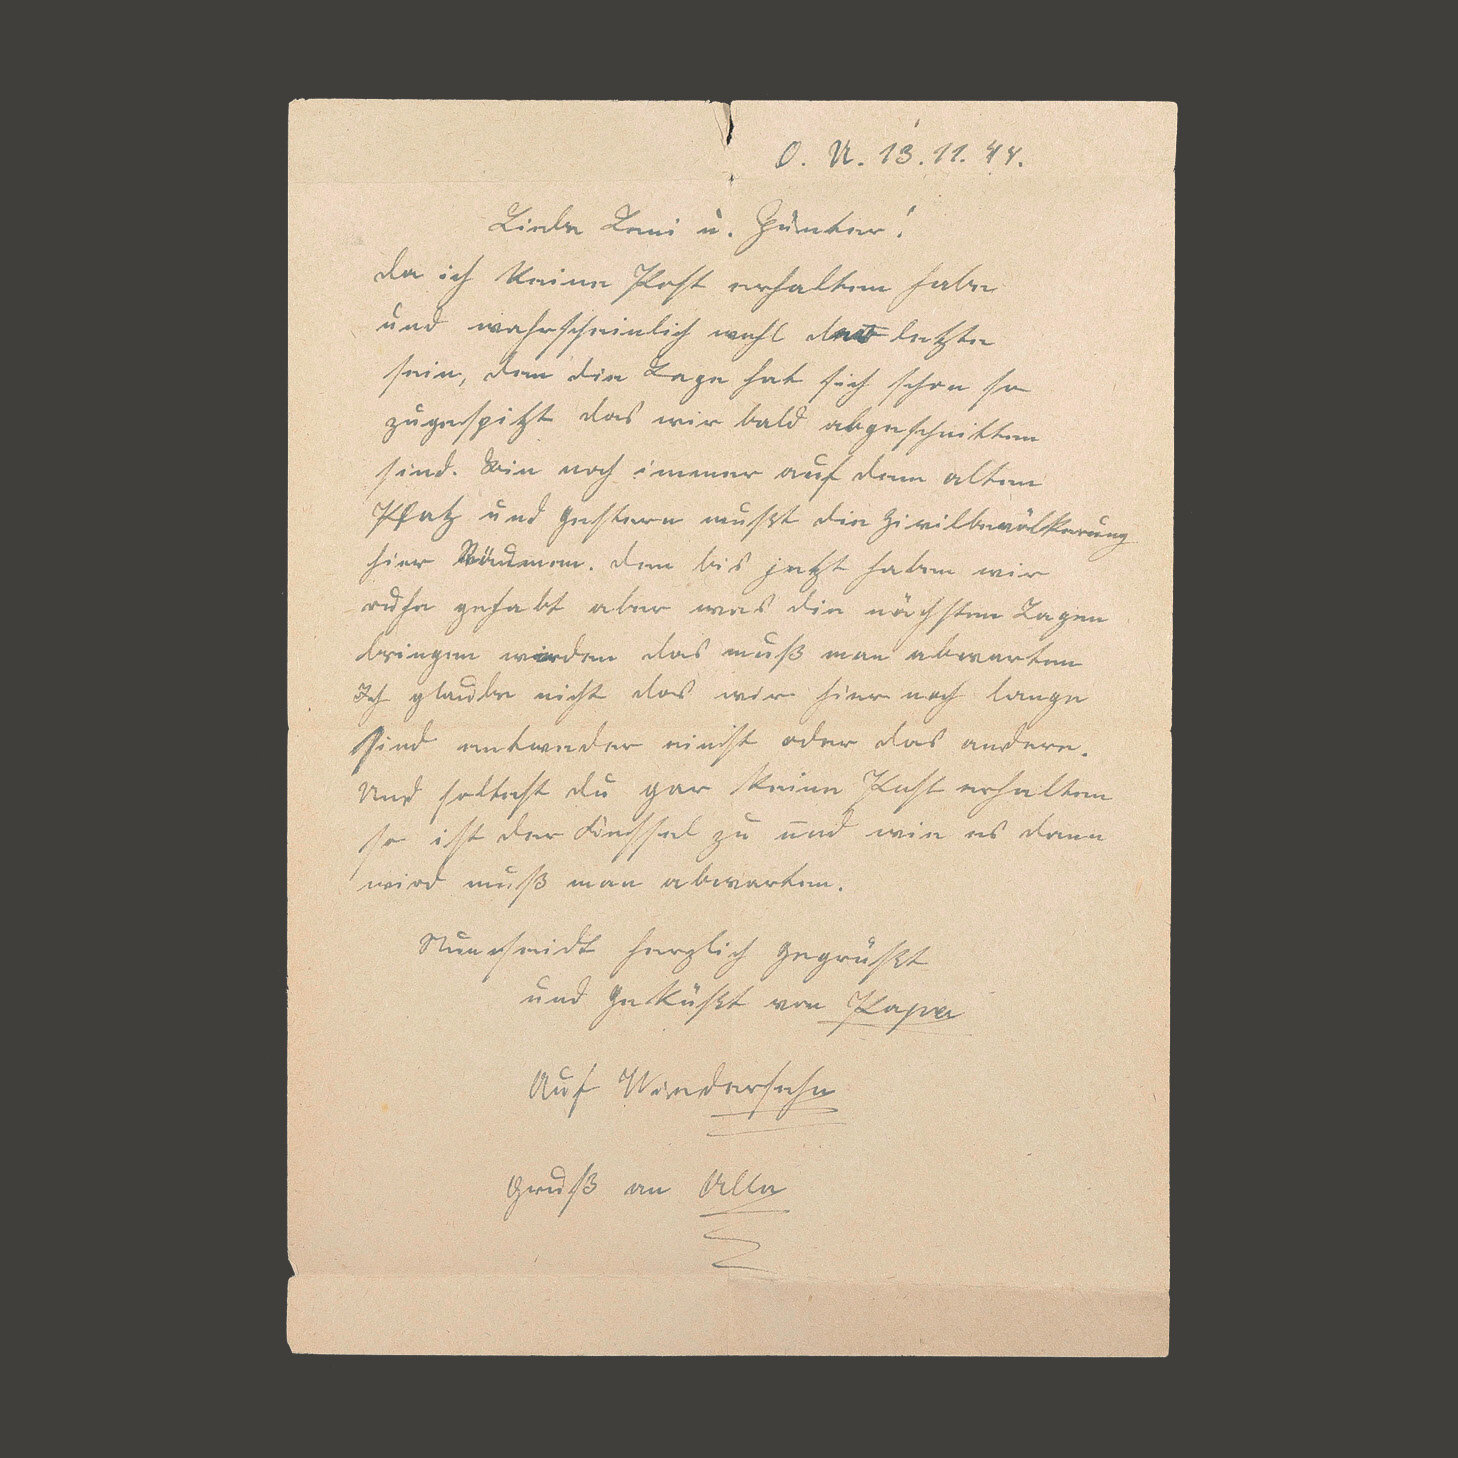 O. U. 13.11.44.
Liebe Leni u. Günter!
da ich Keine Post erhalten habe
und wahrscheinlich wohl das letzte
sein, den die Lage hat sich schon so
zugespitzt das wir bald abgeschnitten
sind. Bin noch immer auf dem alten
Platz und Gestern mußt die Zivilbevölkerung
hier Räumen. den bis jetzt haben wir
ruhe gehabt aber was die nächsten Tagen
bringen werden das muß man abwarten
Ich glaube nicht das wir hier noch lange
Sind entweder einst oder das andere.
Und soltest du gar Keine Post erhalten
so ist der Kessel zu und wie es dann
wird muß man abwarten.
Nun seidt herzlich Gegrüßt
und GeKüßt von Papa
Auf Wiedersehn
Gruß an Alle